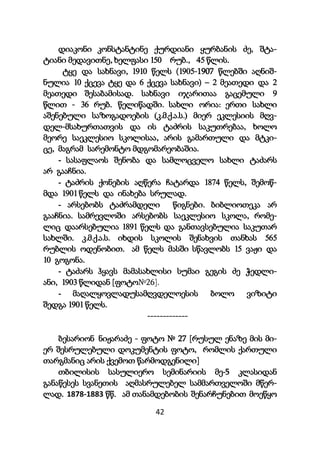 დიაკონი კონსტანტინე ქურდიანი ყურბანის ძე, შტა-
ტიანი მედავითნე, ხელფასი 150 რუბ., 45 წლის.
ტყე და სახნავი, 1910 წელს (1905-1907 წლებში აღნიშ-
ნულია 10 ქცევა ტყე და 6 ქცევა სახნავი) – 2 მეათედი და 2
მეათედი შესაბამისად. სახნავი იჯარითაა გაცემული 9
წლით - 36 რუბ. წელიწადში. სახლი ორია: ერთი სახლი
აშენებული საზოგადოების (კ.მ.ქ.ა.ს.) მიერ ეკლესიის მღვ-
დელ-მსახურთათვის და ის ტაძრის საკუთრებაა, ხოლო
მეორე საეკლესიო სკოლისაა, არის გამართული და მტკი-
ცე, მაგრამ სარემონტო მდგომარეობაშია.
- სასაფლაოს შენობა და სამლოცველო სახლი ტაძარს
არ გააჩნია.
- ტაძრის ქონების აღწერა ჩატარდა 1874 წელს, შემოწ-
მდა 1901 წელს და ინახება სრულად.
- არსებობს ტაძრამდელი წიგნები. ბიბლიოთეკა არ
გააჩნია. სამრევლოში არსებობს საეკლესიო სკოლა, რომე-
ლიც დაარსებულია 1891 წელს და განთავსებულია საკუთარ
სახლში. კ.მ.ქ.ა.ს. იხდის სკოლის შენახვის თანხას 565
რუბლის ოდენობით. ამ წელს მასში სწავლობს 15 ვაჟი და
10 გოგონა.
- ტაძარს ჰყავს მამასახლისი სუმაი გეგის ძე ჭედლი-
ანი, 1903 წლიდან [ფოტო№26].
- მაღალყოვლადუსამღვდელოესის ბოლო ვიზიტი
შედგა 1901 წელს.
-------------
ბესარიონ ნიჟარაძე - ფოტო № 27 [რუსულ ენაზე მის მი-
ერ შესრულებული დოკუმენტის ფოტო, რომლის ქართული
თარგმანიც არის ქვემოთ წარმოდგენილი]
თბილისის სასულიერო სემინარიის მე-5 კლასიდან
განაწესეს სვანეთის აღმასრულებელ სამმართველოში მწერ-
ლად. 1878-1883 წწ. ამ თანამდებობის შენარჩუნებით მოეწყო
42